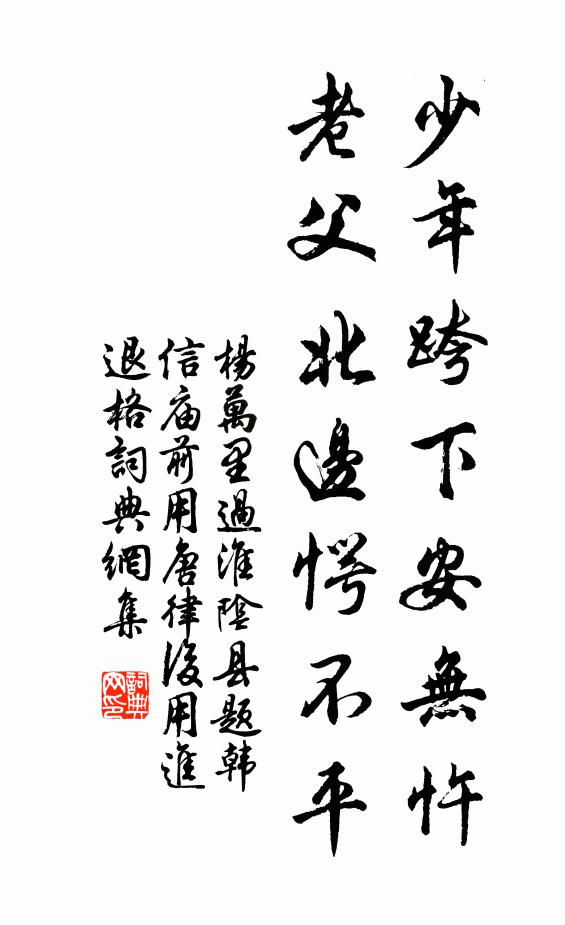 少年跨下安無忤
老父北邊愕不平
楊萬里過淮陰县題韩
信庙前用唐律後用進
退格詞典網集
詞典
网印